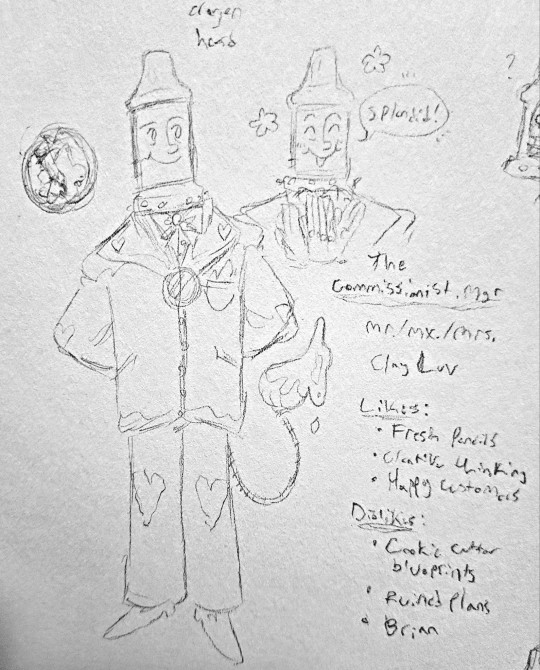 crayon
head
Splendid!
?
The
Commissionist. Mgr
Mr./Mx./Mrs.
Clay Luv
Likes:
• Fresh Pencils
• Creative thinking
• Happy customers
Dislikes:
• Cookie cutter
blueprints
• Ruined plans
• Brian